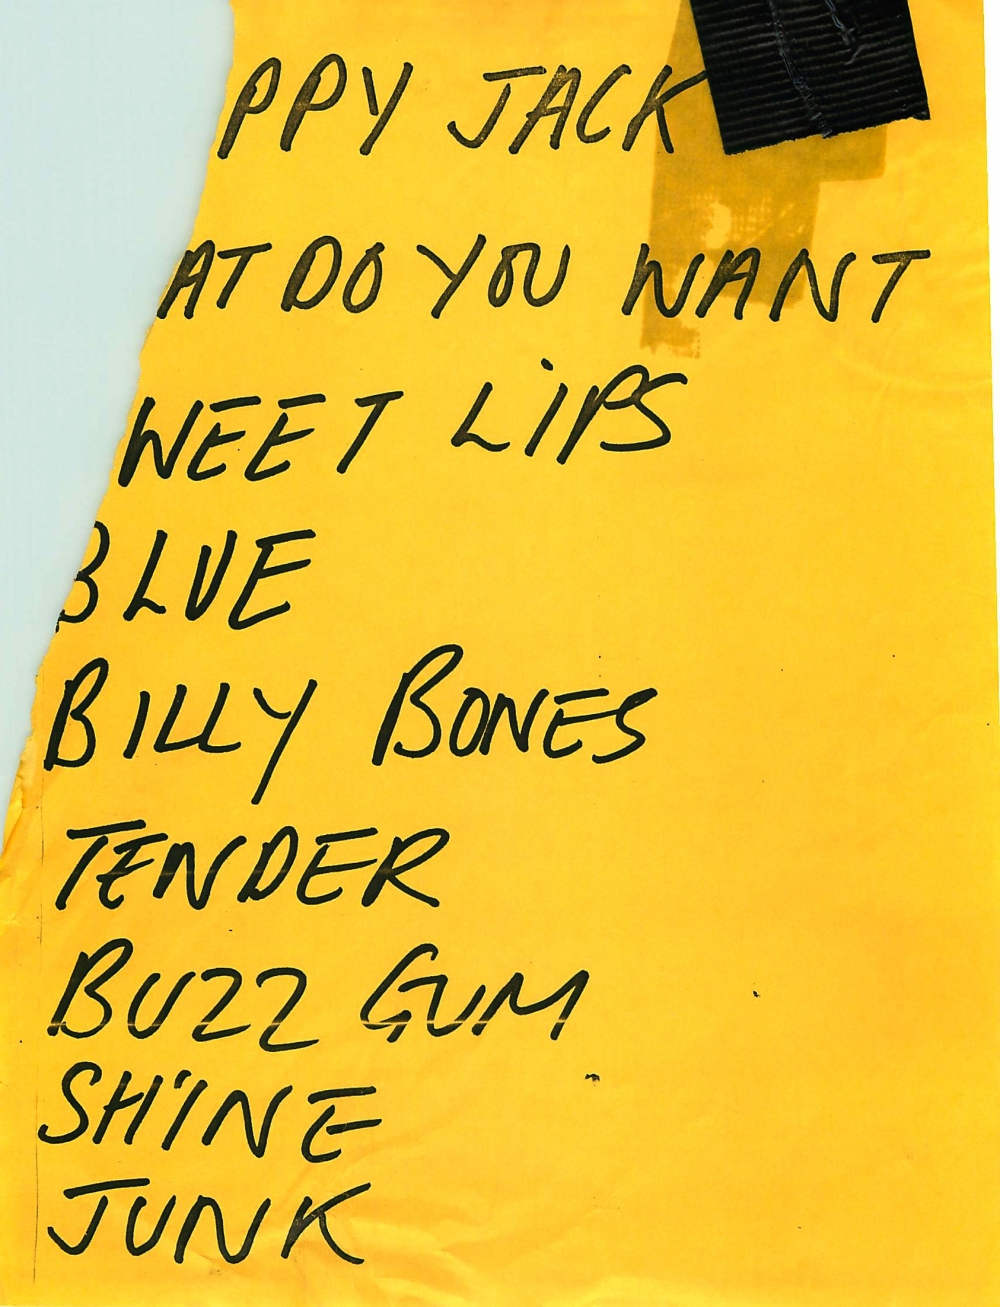 PPY JACK
AT DO YOU WANT
WEET LiPS
BLUE
BILLY BONES
TENDER
BUZZ GUM
SHiNE
JUNK